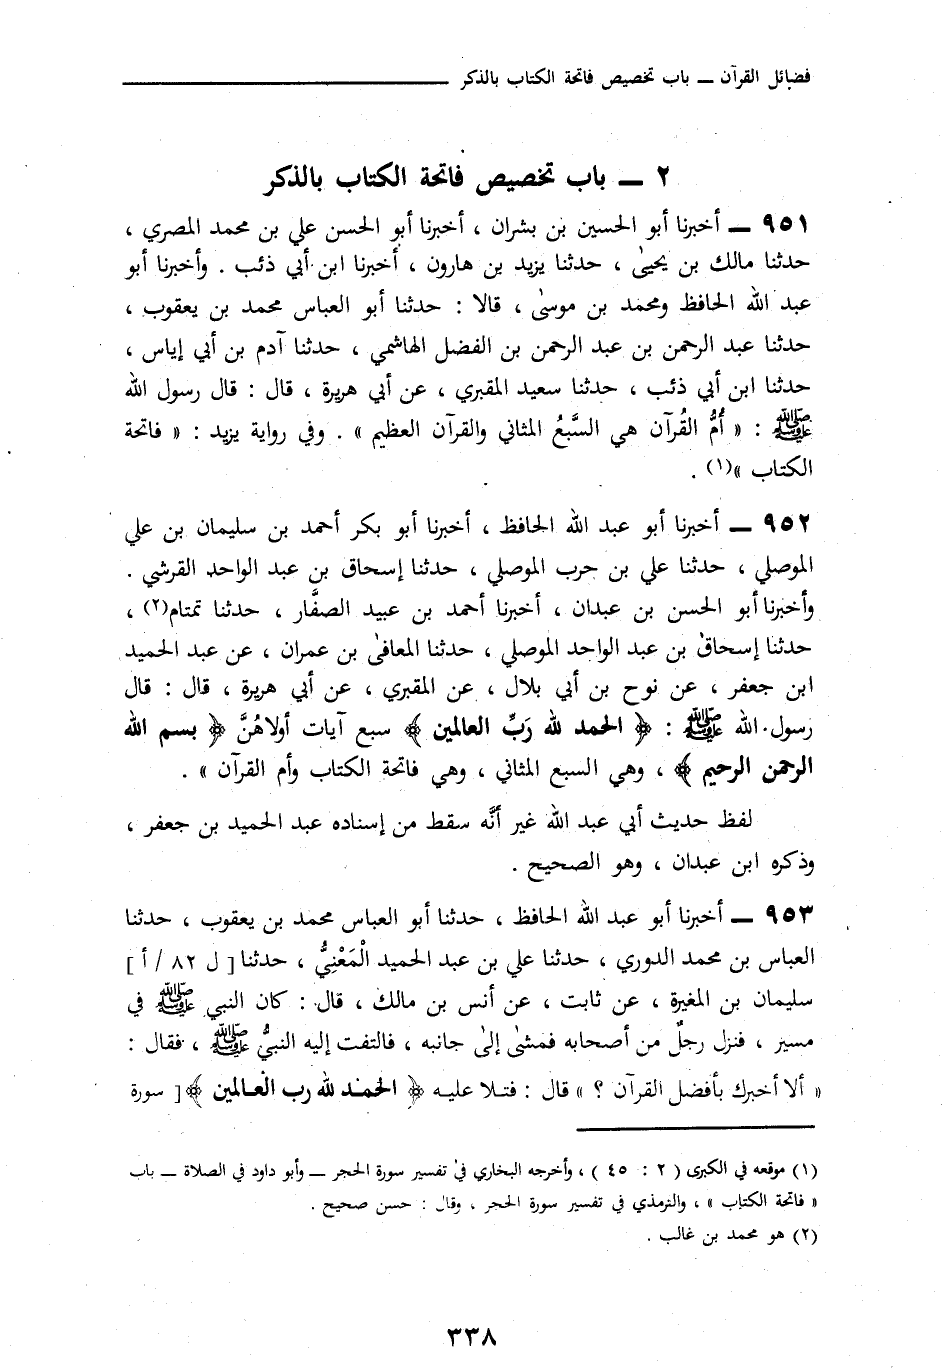 فضائل القرآن ــ باب تخصيص فاتحة الكتاب بالذكر
٢ ــ باب تخصيص فاتحة الكتاب بالذكر
٩٥١ ــ أخبرنا أبو الحسين بن بشران ، أخبرنا أبو الحسن علي بن محمد المصري ،
حدثنا مالك بن يحيىٰ ، حدثنا يزيد بن هارون ، أخبرنا ابن أبي ذئب . وأخبرنا أبو
عبد الله الحافظ ومحمد بن موسىٰ ، قالا : حدثنا أبو العباس محمد بن يعقوب ،
حدثنا عبد الرحمن بن عبد الرحمن بن الفضل الهاشمي ، حدثنا آدم بن أبي إياس ،
حدثنا ابن أبي ذئب ، حدثنا سعيد المقبري ، عن أبي هريرة ، قال : قال رسول الله
ﷺ : « أُمُّ القُرآن هي السَّبعُ المثاني والقرآن العظيم » . وفي رواية يزيد : « فاتحة
الكتاب »(١) .
٩٥٢ ــ أخبرنا أبو عبد الله الحافظ ، أخبرنا أبو بكر أحمد بن سليمان بن علي
الموصلي ، حدثنا علي بن حرب الموصلي ، حدثنا إسحاق بن عبد الواحد القرشي .
وأخبرنا أبو الحسن بن عبدان ، أخبرنا أحمد بن عبيد الصفَّار ، حدثنا تمتام(٢) ،
حدثنا إسحاق بن عبد الواحد الموصلي ، حدثنا المعافىٰ بن عمران ، عن عبد الحميد
ابن جعفر ، عن نوح بن أبي بلال ، عن المقبري ، عن أبي هريرة ، قال : قال
رسول الله ﷺ : ﴿ الحمد لله رَبِّ العالمين ﴾ سبع آيات أولاهُنَّ ﴿ بسم الله
الرحمن الرحيم ﴾ ، وهي السبع المثاني ، وهي فاتحة الكتاب وأم القرآن » .
لفظ حديث أبي عبد الله غير أنَّه سقط من إسناده عبد الحميد بن جعفر ،
وذكره ابن عبدان ، وهو الصحيح .
٩٥٣ ــ أخبرنا أبو عبد الله الحافظ ، حدثنا أبو العباس محمد بن يعقوب ، حدثنا
العباس بن محمد الدوري ، حدثنا علي بن عبد الحميد الْمَعْنِيُّ ، حدثنا [ ل ٨٢ / أ ]
سليمان بن المغيرة ، عن ثابت ، عن أنس بن مالك ، قال : كان النبي ﷺ في
مسير ، فنزل رجلٌ من أصحابه فمشىٰ إلىٰ جانبه ، فالتفت إليه النبيُّ ﷺ ، فقال :
« ألا أخبرك بأفضل القرآن ؟ » قال : فتلا عليه ﴿ الحمد لله رب العالمين ﴾ [ سورة
(١) موقعه في الكبرى ( ٢ : ٤٥ ) ، وأخرجه البخاري في تفسير سورة الحجر ــ وأبو داود في الصلاة ــ باب
« فاتحة الكتاب » ، والترمذي في تفسير سورة الحجر ، وقال : حسن صحيح .
(٢) هو محمد بن غالب .
٣٣٨